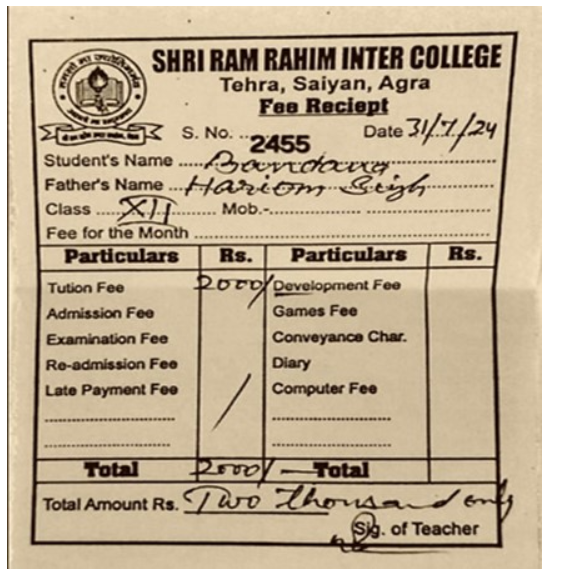 SHRI RAM RAHIM INTER COLLEGE
Tehra, Saiyan, Agra
Fee Reciept
S. No. .. 2455 Date 31/7/24
Student's Name ..... Bandana
Father's Name .. Hariom Sigh
Class ..... XII ..... Mob.-...............................
Fee for the Month ...............................
Particulars Rs. Particulars Rs.
Tution Fee 2000/ Development Fee
Admission Fee Games Fee
Examination Fee Conveyance Char.
Re-admission Fee Diary
Late Payment Fee / Computer Fee
Total 2000/ — Total
Total Amount Rs. Two thousand only
Sig. of Teacher